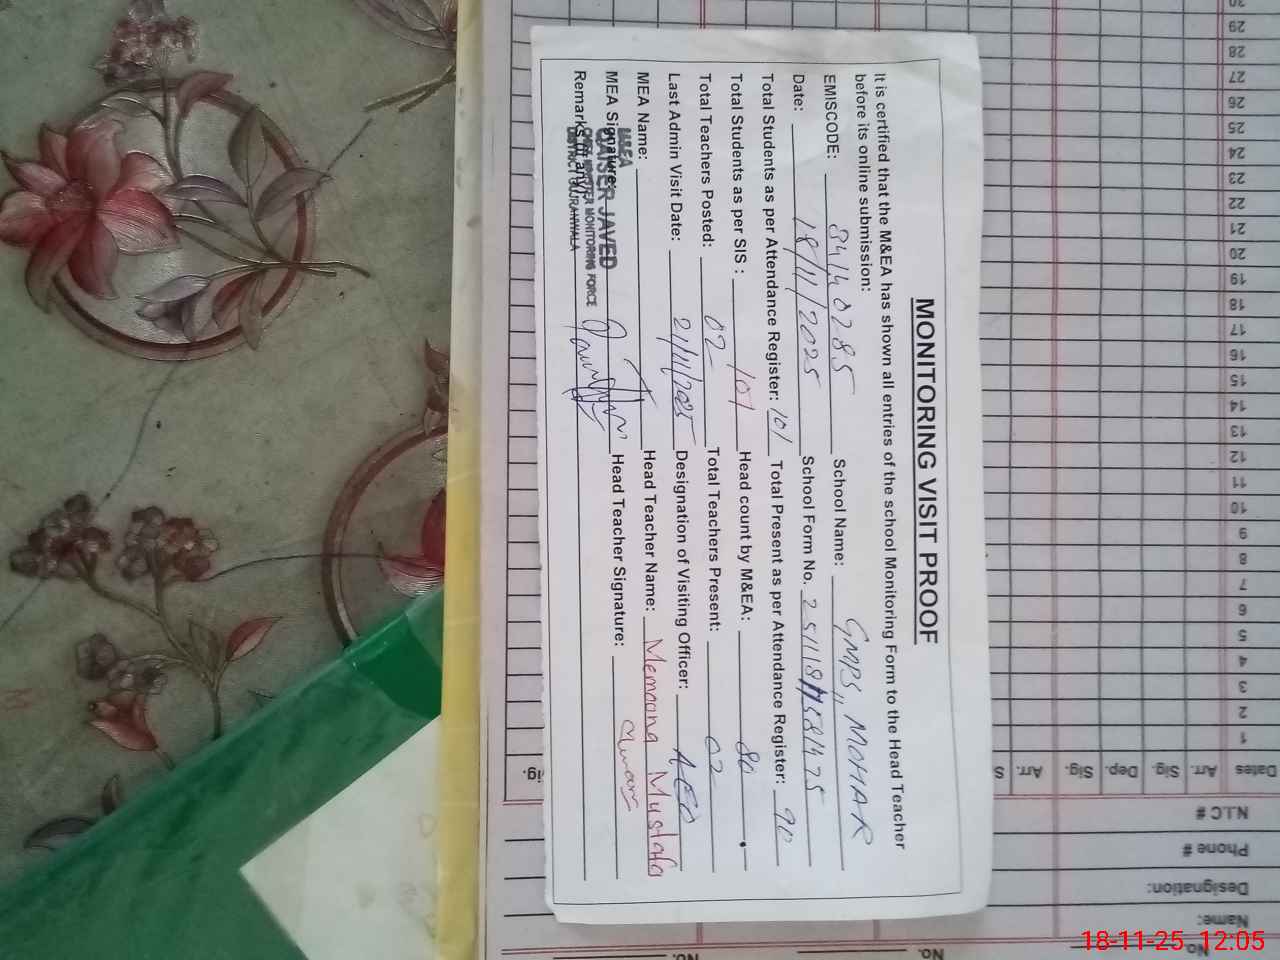 MONITORING VISIT PROOF
It is certified that the M&EA has shown all entries of the school Monitoring Form to the Head Teacher
before its online submission:
EMISCODE: 34140285 School Name: GMPS,, MOHAR
Date: 18/11/2025 School Form No. 251118
Total Students as per Attendance Register: 101 Total Present as per Attendance Register: 90
Total Students as per SIS : 101 Head count by M&EA: 80
Total Teachers Posted: 02 Total Teachers Present: 02
Last Admin Visit Date: Designation of Visiting Officer: AEO
MEA Name: Head Teacher Name: Memoona Mustafa
MEA Signature: Head Teacher Signature:
Remarks (if any):
M&EA
QAISER JAVED
CHIEF MINISTER MONITORING FORCE
DISTRICT GUJRANWALA
No. No. No.
Name:
Designation:
Phone #
N.I.C #
Dates Arr. Sig. Dep. Sig. Arr. S
1
2
3
4
5
6
7
8
9
10
11
12
13
14
15
16
17
18
19
20
21
22
23
24
25
26
27
28
29
30
18-11-25 12:05